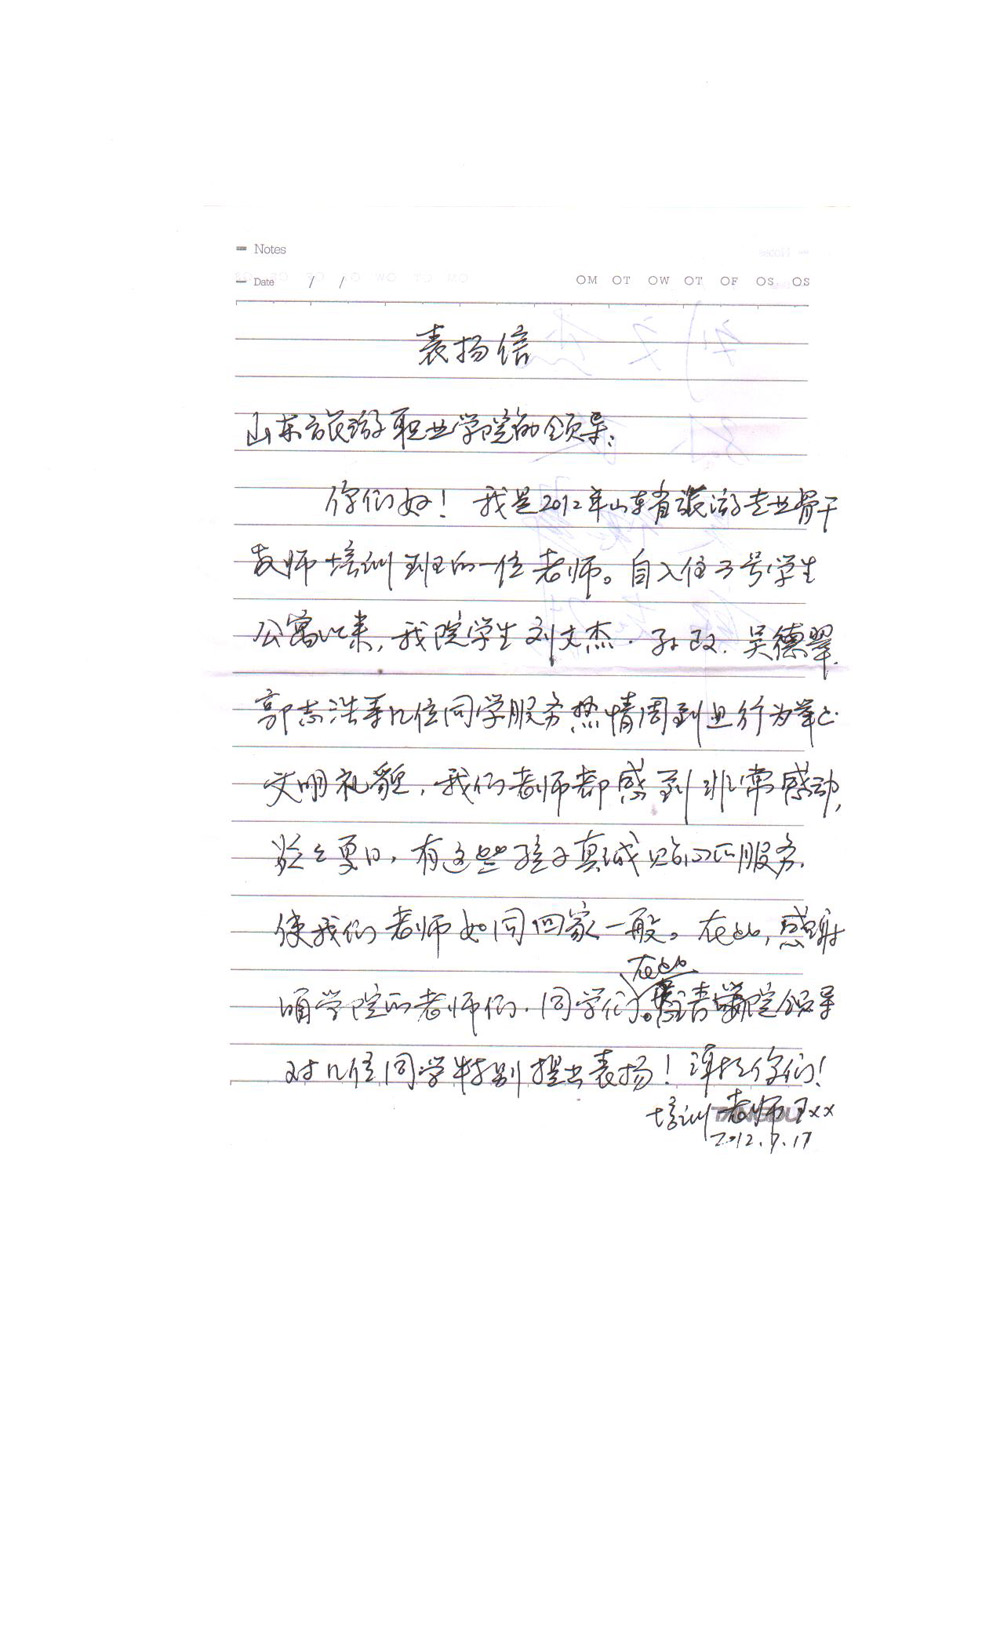 Notes
Date / /
OM OT OW OT OF OS OS
表扬信
山东旅游职业学院的领导：
你们好！我是2012年山东省旅游专业骨干
教师培训班的一位老师。自入住3号学生
公寓以来，我院学生刘文杰、孙政、吴德翠、
郭志浩等几位同学服务热情周到且行为举止
文明礼貌，我们老师都感到非常感动，
炎夏日，有这些孩子真诚贴心的服务，
使我们老师如同回家一般。在此，感谢
学院的老师们，同学们。在此请学院领导
对几位同学特别提出表扬！谢谢你们！
培训老师王××
2012.7.17